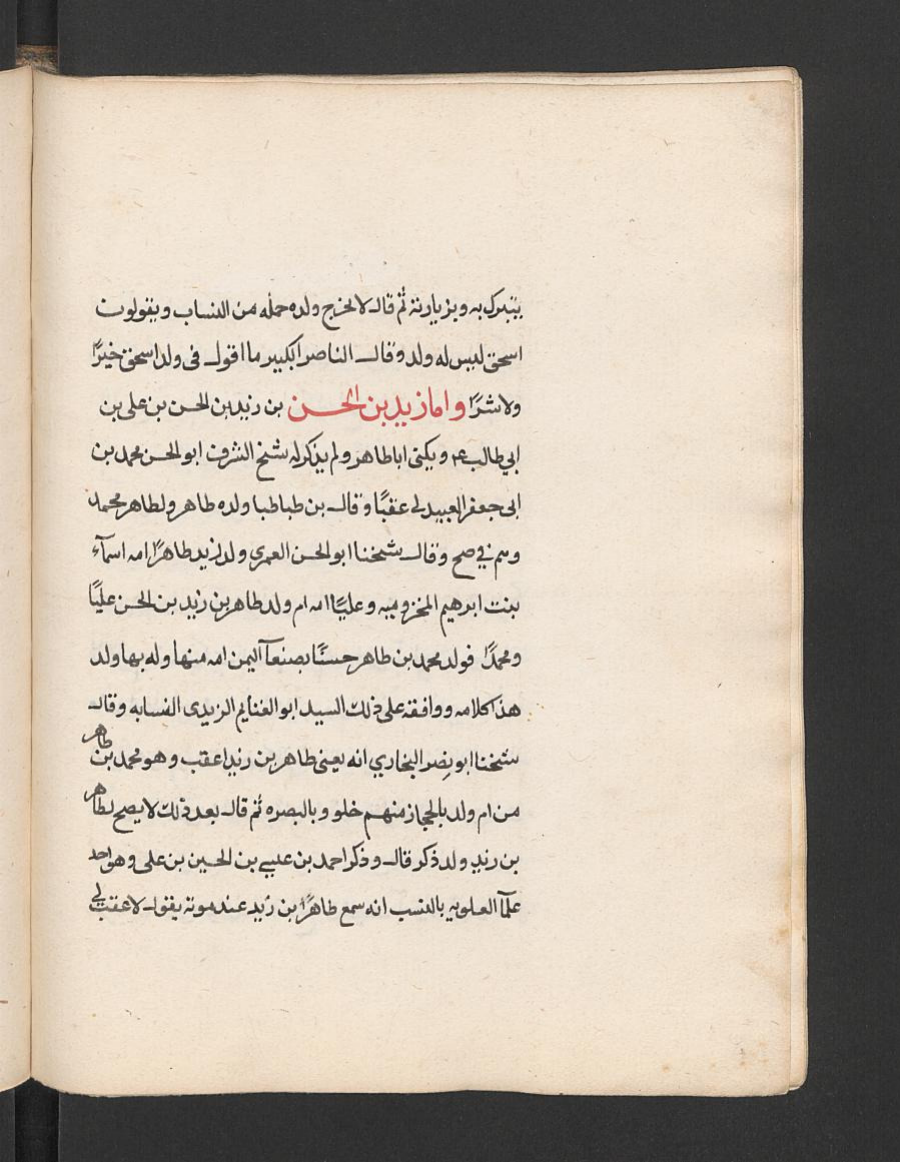 يتبرك به وبزيارته ثم قال لا لخرج ولده حمله من النساب ويقولون
اسحق ليس له ولد وقال الناصر الكبير ما اقول في ولد اسحق خيرًا
ولا شرًا واما زيد بن الحسن بن زيد بن الحسن بن على بن
ابي طالب عم ويكنى ابا طاهر ولم يذكر له شيخ الشرف ابو الحسن محمد بن
ابى جعفر العبيدلي عقبًا وقال بن طباطبا ولده طاهر ولطاهر محمد
وسم في صح وقال شيخنا ابو الحسن العمري ولد لزيد طاهرًا امه اسمآء
بنت ابرهيم المخزوميه وعليًا امه ام ولد طاهر بن زيد بن الحسن عليًا
ومحمدًا فولد محمد بن طاهر حسنًا بصنعآ اليمن امه منها وله بها ولد
هذا كلامه ووافقه على ذلك السيد ابو الغنايم الزيدى النسابه وقال
شيخنا ابو نصر البخاري انه يعنى طاهر بن زيد اعقب وهو محمد بن طاهر
من ام ولد بالحجاز منهم خلو وبالبصره ثم قال بعد ذلك لا يصح لطاهر
بن زيد ولد ذكر قال وذكر احمد بن عيسى بن الحسين بن على وهو احد
علمآ العلويه بالنسب انه سمع طاهرًا بن زيد عند موته يقول لا عقب لي